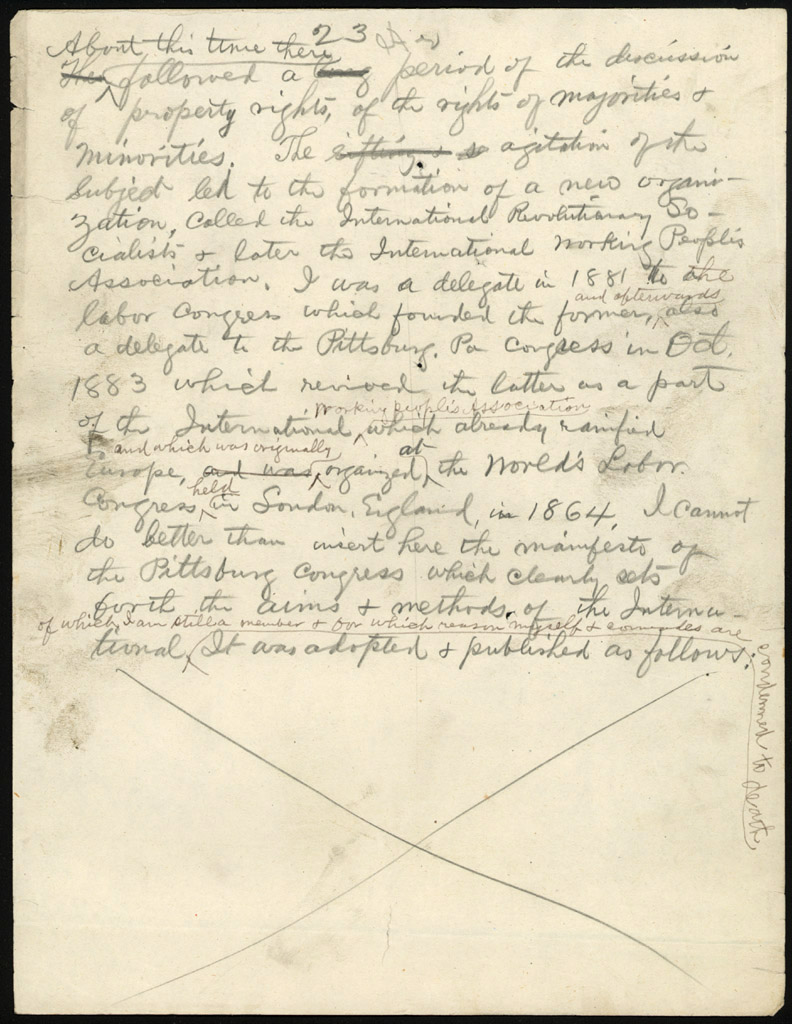 23
About this time there
Then followed a long period of the discussion
of property rights, of the rights of majorities &
minorities. The sifting & agitation of the
subject led to the formation of a new organi-
zation, called the International Revolutionary So-
cialists & later the International Working People's
Association. I was a delegate in 1881 to the
labor Congress which founded the former, also
and afterwards
a delegate to the Pittsburg, Pa Congress in Oct.
1883 which revived the latter as a part
of the International, which already ramified
Working People's Association
Europe, and was organized, at the World's Labor
and which was originally
Congress, held in London, England, in 1864. I cannot
do better than insert here the manifesto of
the Pittsburg Congress which clearly sets
forth the aims & methods of the Interna-
of which I am still a member & for which reason myself & comrades are
condemned to death
tional, It was adopted & published as follows: